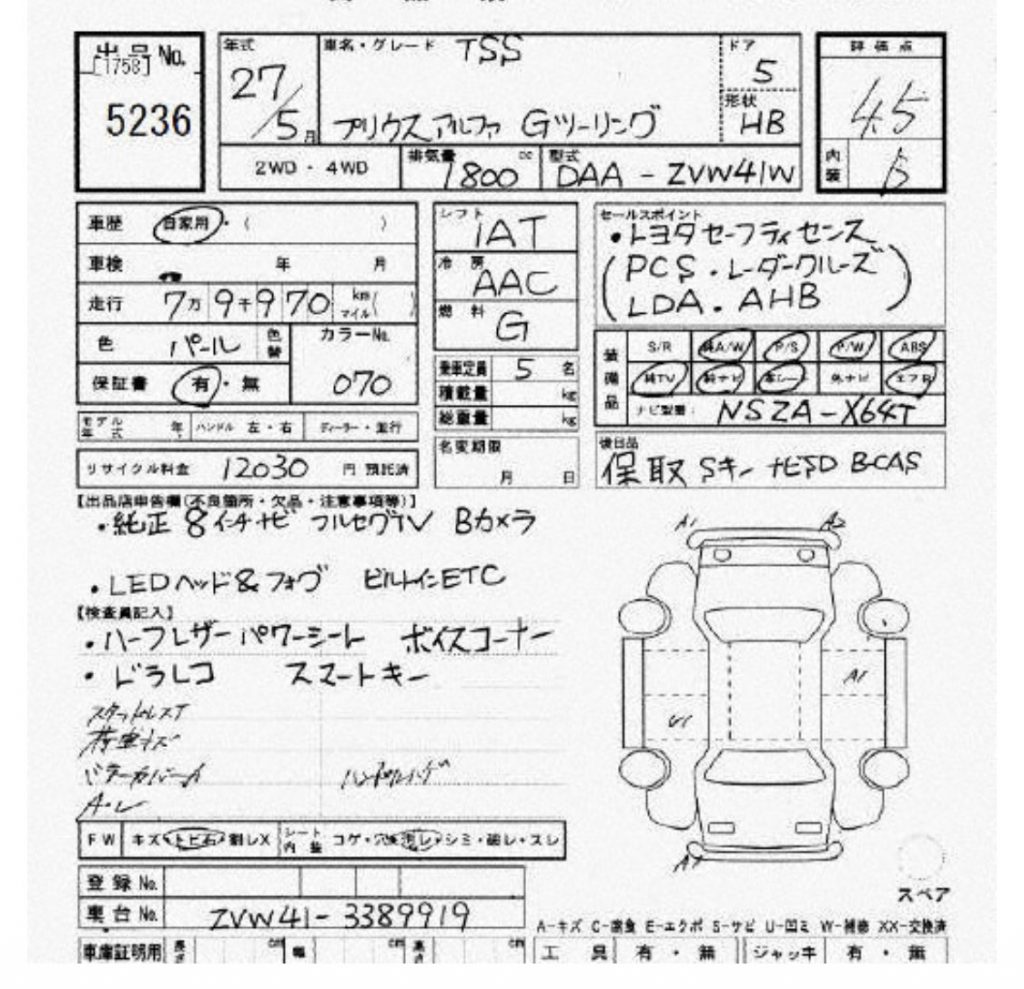 出品 No.
[1758]
5236
年式
27/5月
車名・グレード TSS
プリウスアルファ Gツーリング
ドア
5
形状
HB
評価点
4.5
内装 B
2WD・4WD
排気量 1800 cc
型式 DAA-ZVW41W
車歴 自家用・( )
車検 年 月
走行 7万9千970 km マイル( )
色 パール 色替
カラーNo.
070
保証書 有・無
モデル年式 年 ハンドル 左・右 ディーラー・並行
リサイクル料金 12030 円 預託済
シフト
IAT
冷房
AAC
燃料
G
乗車定員 5 名
積載量 kg
総重量 kg
名変期限
月 日
セールスポイント
・トヨタセーフティセンス
(PCS・レーダークルーズ
LDA・AHB)
装備品
S/R 純A/W P/S P/W ABS
純TV 純ナビ 革シート 外ナビ エアB
ナビ型番: NSZA-X64T
後日品
保 取 Sキー ナビSD BCAS
【出品店申告欄(不良箇所・欠品・注意事項等)】
・純正 8インチナビ フルセグTV Bカメラ
・LEDヘッド&フォグ ビルトインETC
【検査員記入】
・ハーフレザー パワーシート ボイスコーナー
・ドラレコ スマートキー
スタッドレスT
荷室キズ
ハンドルハゲ
A・U
FW キズ・トビ石・割レX シート内装 コゲ・穴・汚レ・シミ・破レ・スレ
登録No.
車台No. ZVW41-3389919
車庫証明用 長さ cm 幅 cm 高さ cm
A1
A2
A1
U1
A1
スペア
A-キズ C-腐食 E-エクボ S-サビ U-凹ミ W-補修 XX-交換済
工具 有・無 ジャッキ 有・無